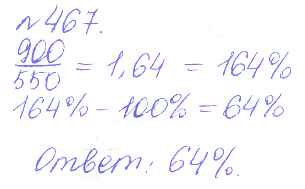 №467.
900/550 = 1,64 = 164%
164% - 100% = 64%
Ответ: 64%.